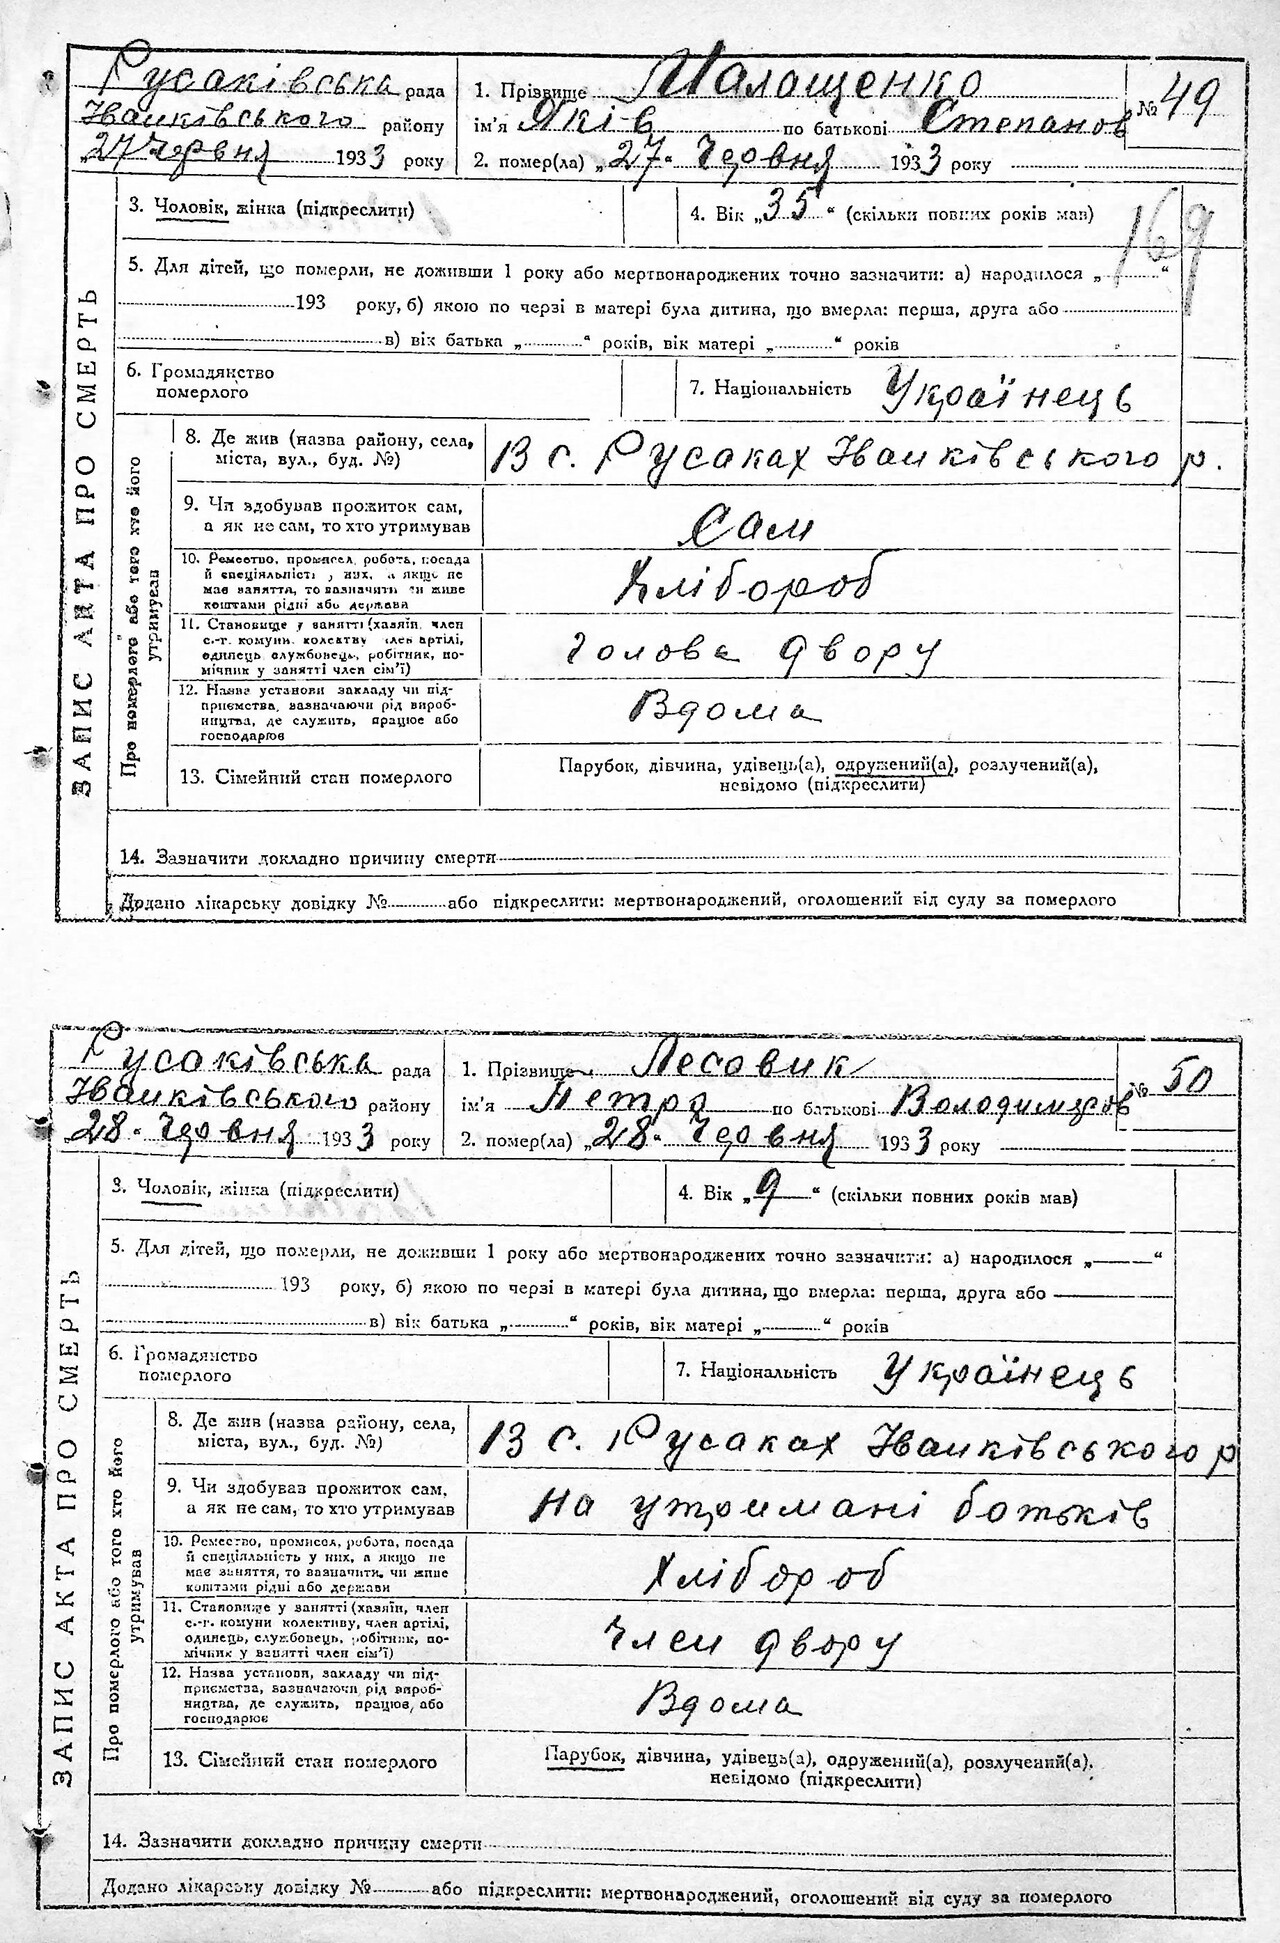 Русаківська рада
Іванківського району
„27 Червня 1933 року
1. Прізвище Малощенко
ім'я Яків по батькові Степанов
№ 49
2. помер(ла) „27" Червня 1933 року
3. Чоловік, жінка (підкреслити)
4. Вік „35" (скільки повних років мав)
169
5. Для дітей, що померли, не доживши 1 року або мертвонароджених точно зазначити: а) народилося „ "
193 року, б) якою по черзі в матері була дитина, що вмерла: перша, друга або
в) вік батька „ " років, вік матері „ " років
6. Громадянство
померлого
7. Національність Українець
ЗАПИС АКТА ПРО СМЕРТЬ
Про померлого або того хто його
утримував
8. Де жив (назва району, села,
міста, вул., буд. №)
В с. Русаках Іванківського р.
9. Чи здобував прожиток сам,
а як не сам, то хто утримував
Сам
10. Ремество, промисел, робота, посада
й спеціяльність у них, а якщо не
має заняття, то зазначити чи живе
коштами рідні або держави
Хлібороб
11. Становище у занятті (хазяїн, член
с.-г. комуни, колективу член артілі,
одинець, службовець, робітник, по-
мічник у занятті член сім'ї)
голова двору
12. Назва установи закладу чи під-
приємства, зазначаючи рід вироб-
ництва, де служить, працює або
господарює
Вдома
13. Сімейний стан померлого
Парубок, дівчина, удівець(а), одружений(а), розлучений(а),
невідомо (підкреслити)
14. Зазначити докладно причину смерти
Додано лікарську довідку № або підкреслити: мертвонароджений, оголошений від суду за померлого
Русаківська рада
Іванківського району
28" Червня 1933 року
1. Прізвище Лесовик
ім'я Петро по батькові Володимиров
№ 50
2. помер(ла) „28" Червня 1933 року
3. Чоловік, жінка (підкреслити)
4. Вік „9" (скільки повних років мав)
5. Для дітей, що померли, не доживши 1 року або мертвонароджених точно зазначити: а) народилося „ "
193 року, б) якою по черзі в матері була дитина, що вмерла: перша, друга або
в) вік батька „ " років, вік матері „ " років
6. Громадянство
померлого
7. Національність Українець
ЗАПИС АКТА ПРО СМЕРТЬ
Про померлого або того хто його
утримував
8. Де жив (назва району, села,
міста, вул., буд. №)
В с. Русаках Іванківського р
9. Чи здобував прожиток сам,
а як не сам, то хто утримував
На утримані батьків
10. Ремество, промисел, робота, посада
й спеціяльність у них, а якщо не
має заняття, то зазначити, чи живе
коштами рідні або держави
Хлібороб
11. Становище у занятті (хазяїн, член
с.-г. комуни колективу, член артілі,
одинець, службовець, робітник, по-
мічник у занятті член сім'ї)
Член двору
12. Назва установи, закладу чи під-
приємства, зазначаючи рід вироб-
ництва, де служить, працює, або
господарює
Вдома
13. Сімейний стан померлого
Парубок, дівчина, удівець(а), одружений(а), розлучений(а),
невідомо (підкреслити)
14. Зазначити докладно причину смерти
Додано лікарську довідку № або підкреслити: мертвонароджений, оголошений від суду за померлого